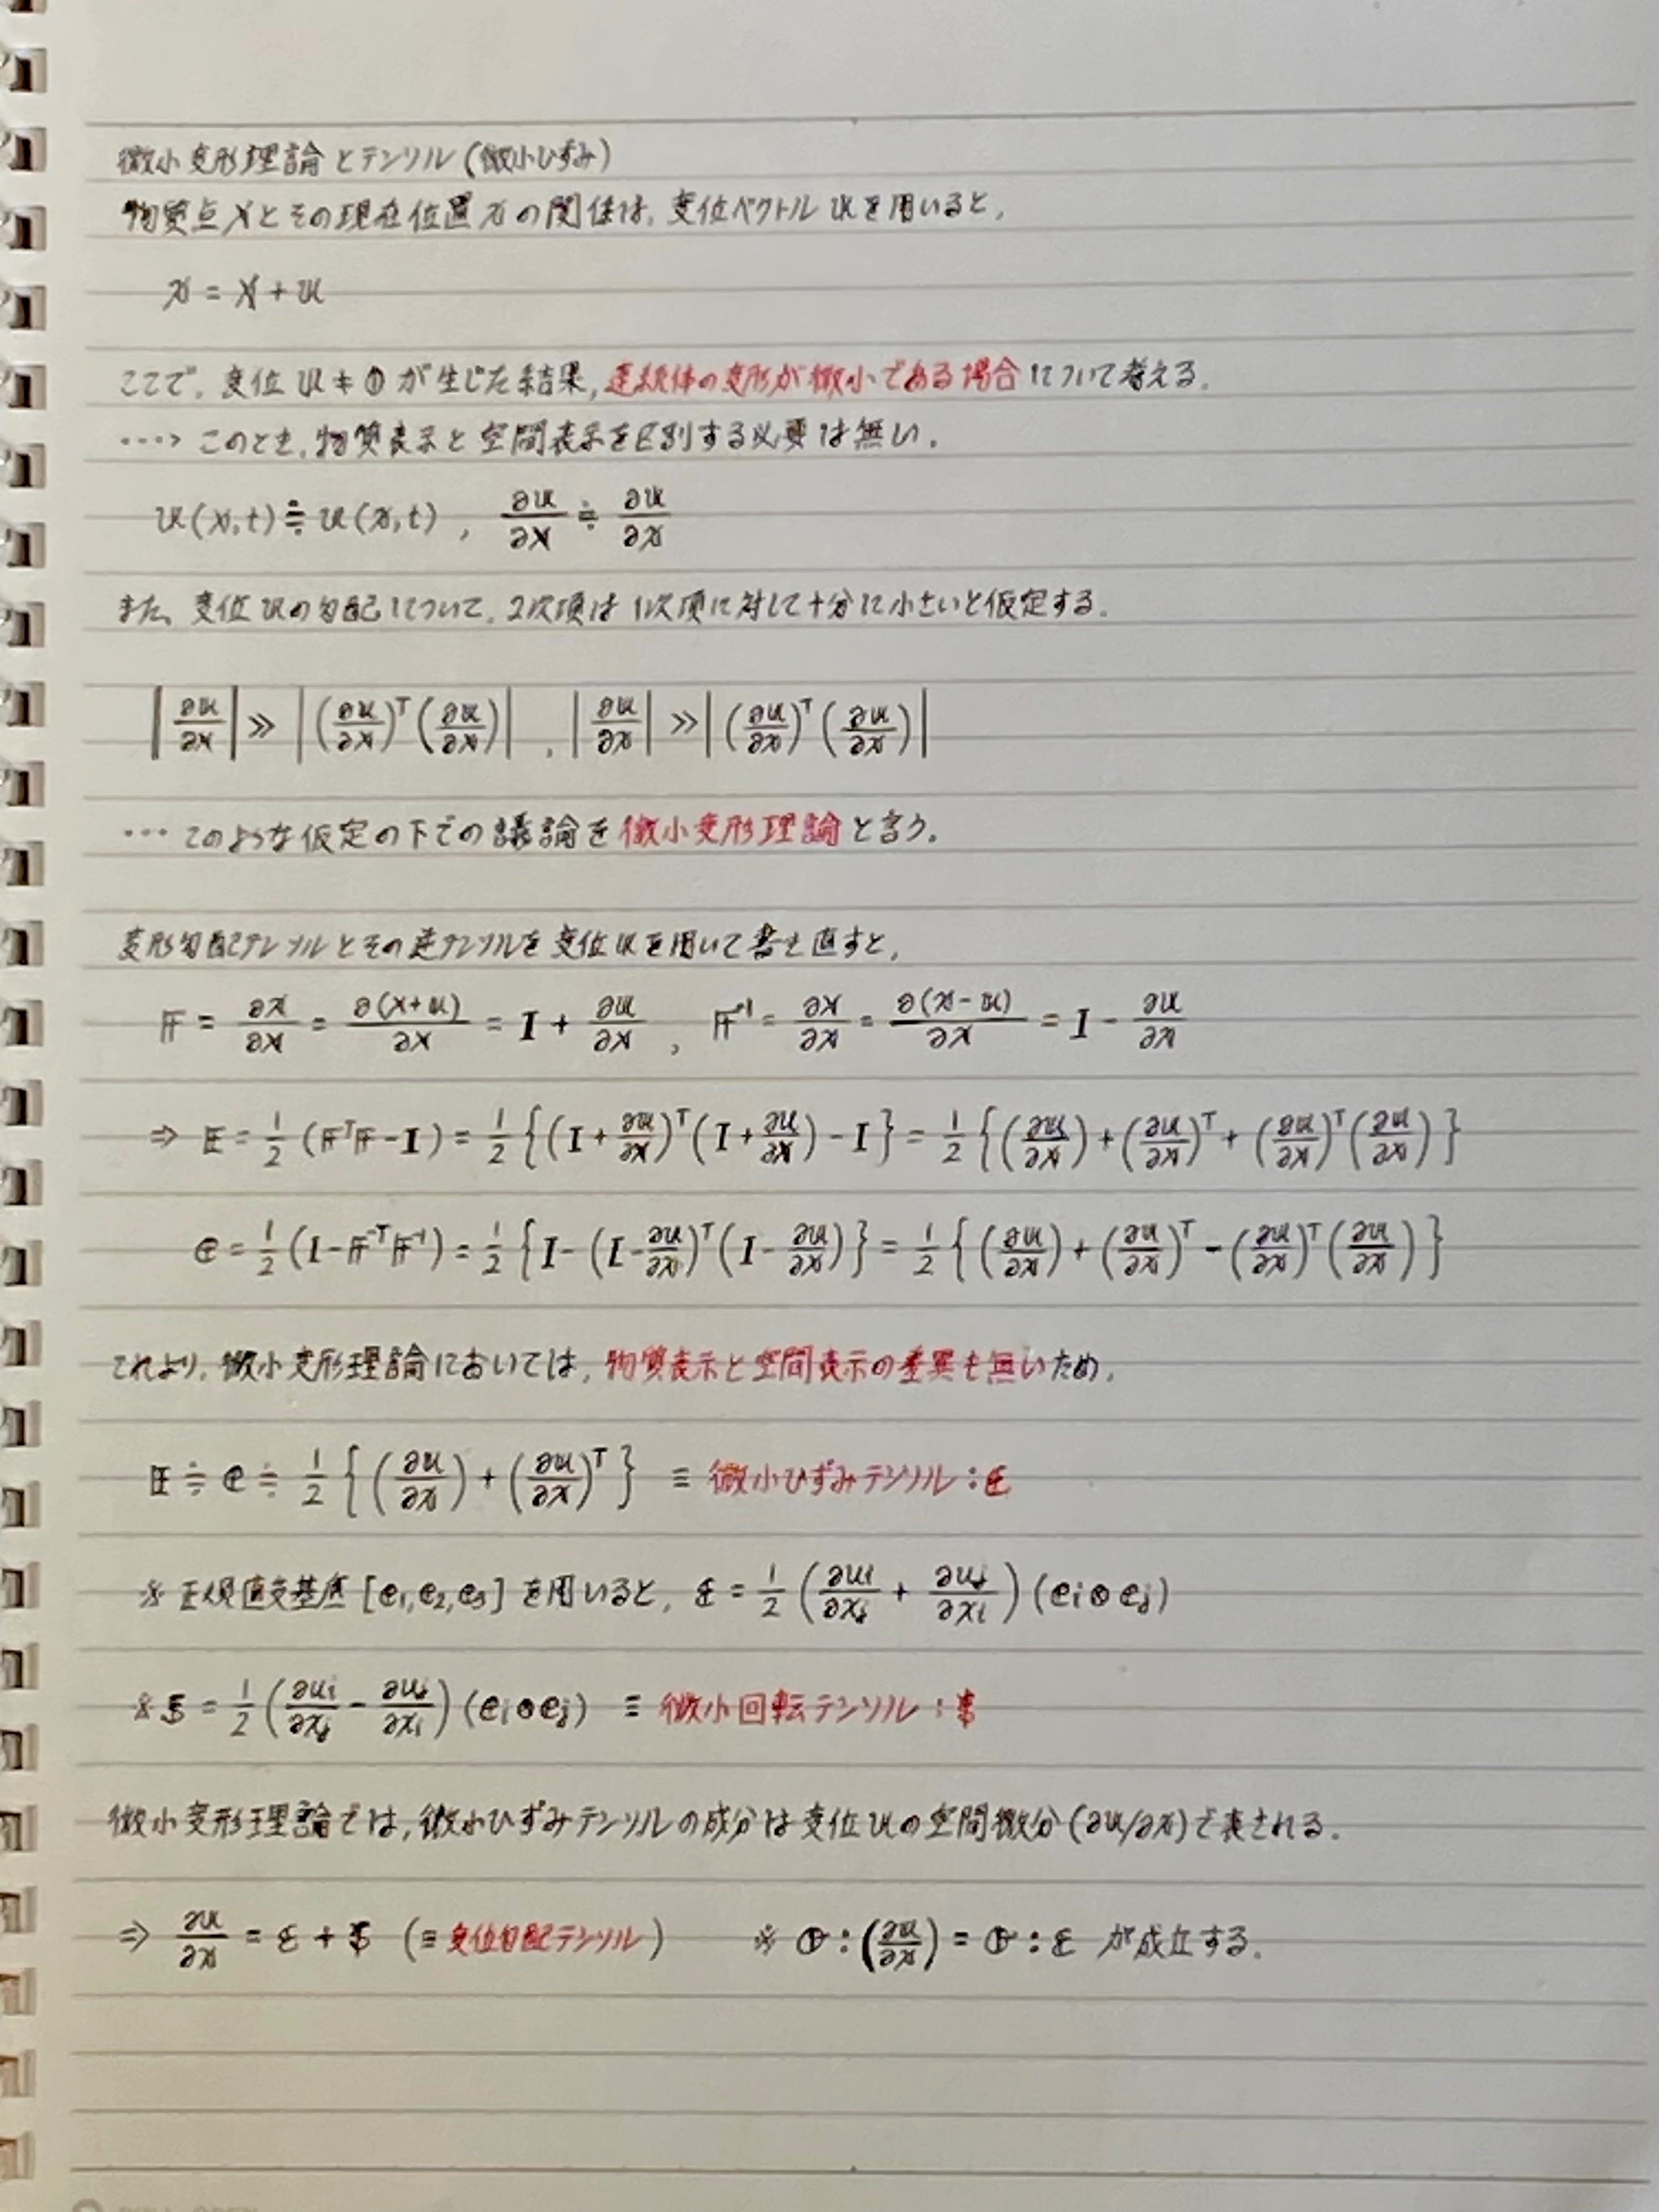 微小変形理論とテンソル(微小ひずみ)
物質点Xとその現在位置xの関係は、変位ベクトルuを用いると、
x = X + u
ここで、変位 u ≠ 0 が生じた結果、連続体の変形が微小である場合について考える。
…→ このとき、物質表示と空間表示を区別する必要は無い。
u(X,t) ≒ u(x,t) , ∂u/∂X ≒ ∂u/∂x
また、変位uの勾配について、2次項は1次項に対して十分に小さいと仮定する。
|∂u/∂X| ≫ |(∂u/∂X)ᵀ(∂u/∂X)| , |∂u/∂x| ≫ |(∂u/∂x)ᵀ(∂u/∂x)|
… このような仮定の下での議論を微小変形理論と言う。
変形勾配テンソルとその逆テンソルを変位uを用いて書き直すと、
F = ∂x/∂X = ∂(X+u)/∂X = I + ∂u/∂X , F⁻¹ = ∂X/∂x = ∂(x-u)/∂x = I - ∂u/∂x
⇒ E = 1/2 (FᵀF - I) = 1/2 {(I + ∂u/∂X)ᵀ(I + ∂u/∂X) - I} = 1/2 {(∂u/∂X) + (∂u/∂X)ᵀ + (∂u/∂X)ᵀ(∂u/∂X)}
e = 1/2 (I - F⁻ᵀF⁻¹) = 1/2 {I - (I - ∂u/∂x)ᵀ(I - ∂u/∂x)} = 1/2 {(∂u/∂x) + (∂u/∂x)ᵀ - (∂u/∂x)ᵀ(∂u/∂x)}
これより、微小変形理論においては、物質表示と空間表示の差異も無いため、
E ≒ e ≒ 1/2 {(∂u/∂x) + (∂u/∂x)ᵀ} ≡ 微小ひずみテンソル : ε
※ 正規直交基底 [e₁,e₂,e₃] を用いると、ε = 1/2 (∂uᵢ/∂xⱼ + ∂uⱼ/∂xᵢ) (eᵢ⊗eⱼ)
※ S = 1/2 (∂uᵢ/∂xⱼ - ∂uⱼ/∂xᵢ) (eᵢ⊗eⱼ) ≡ 微小回転テンソル : S
微小変形理論では、微小ひずみテンソルの成分は変位uの空間微分(∂u/∂x)で表される。
⇒ ∂u/∂x = ε + S (≡ 変位勾配テンソル) ※ σ : (∂u/∂x) = σ : ε が成立する。